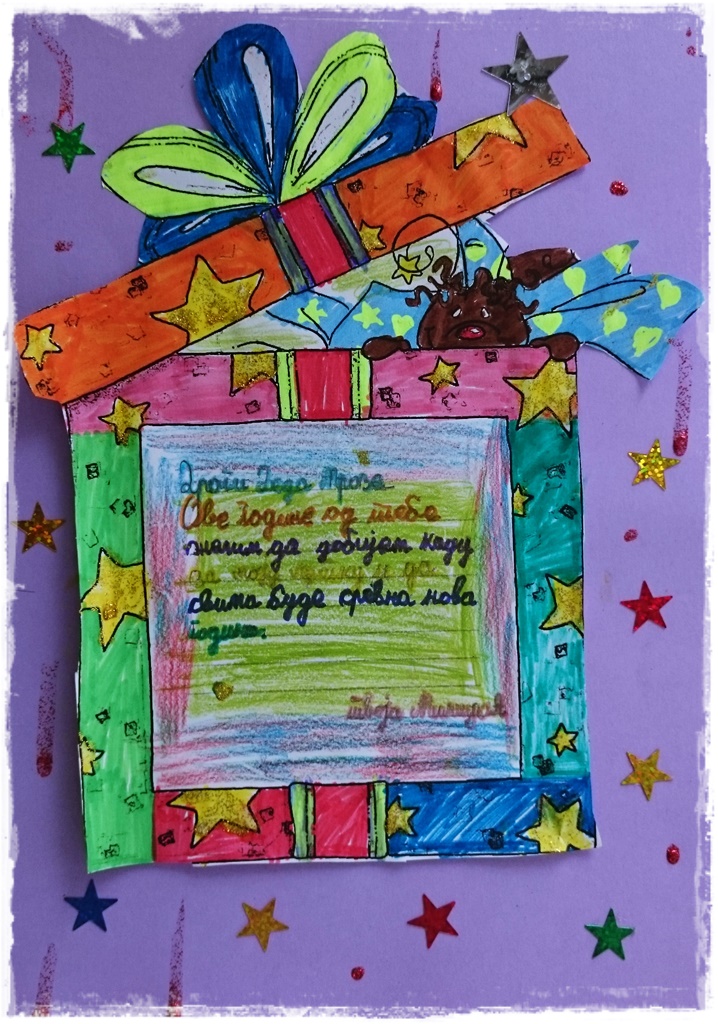 Драги Деда Мразе
Ове године од тебе
желим да добијем каду
за моју и да
свима буде срећна нова
година.
твоја